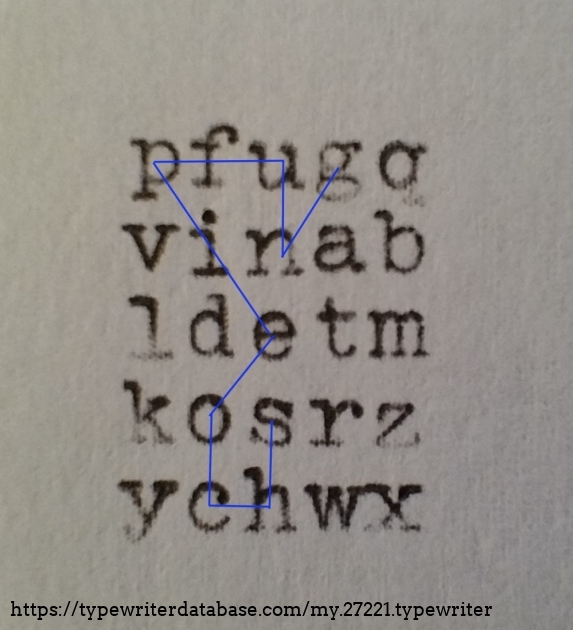 pfugq
vinab
ldetm
kosrz
ychwx
https://typewriterdatabase.com/my.27221.typewriter